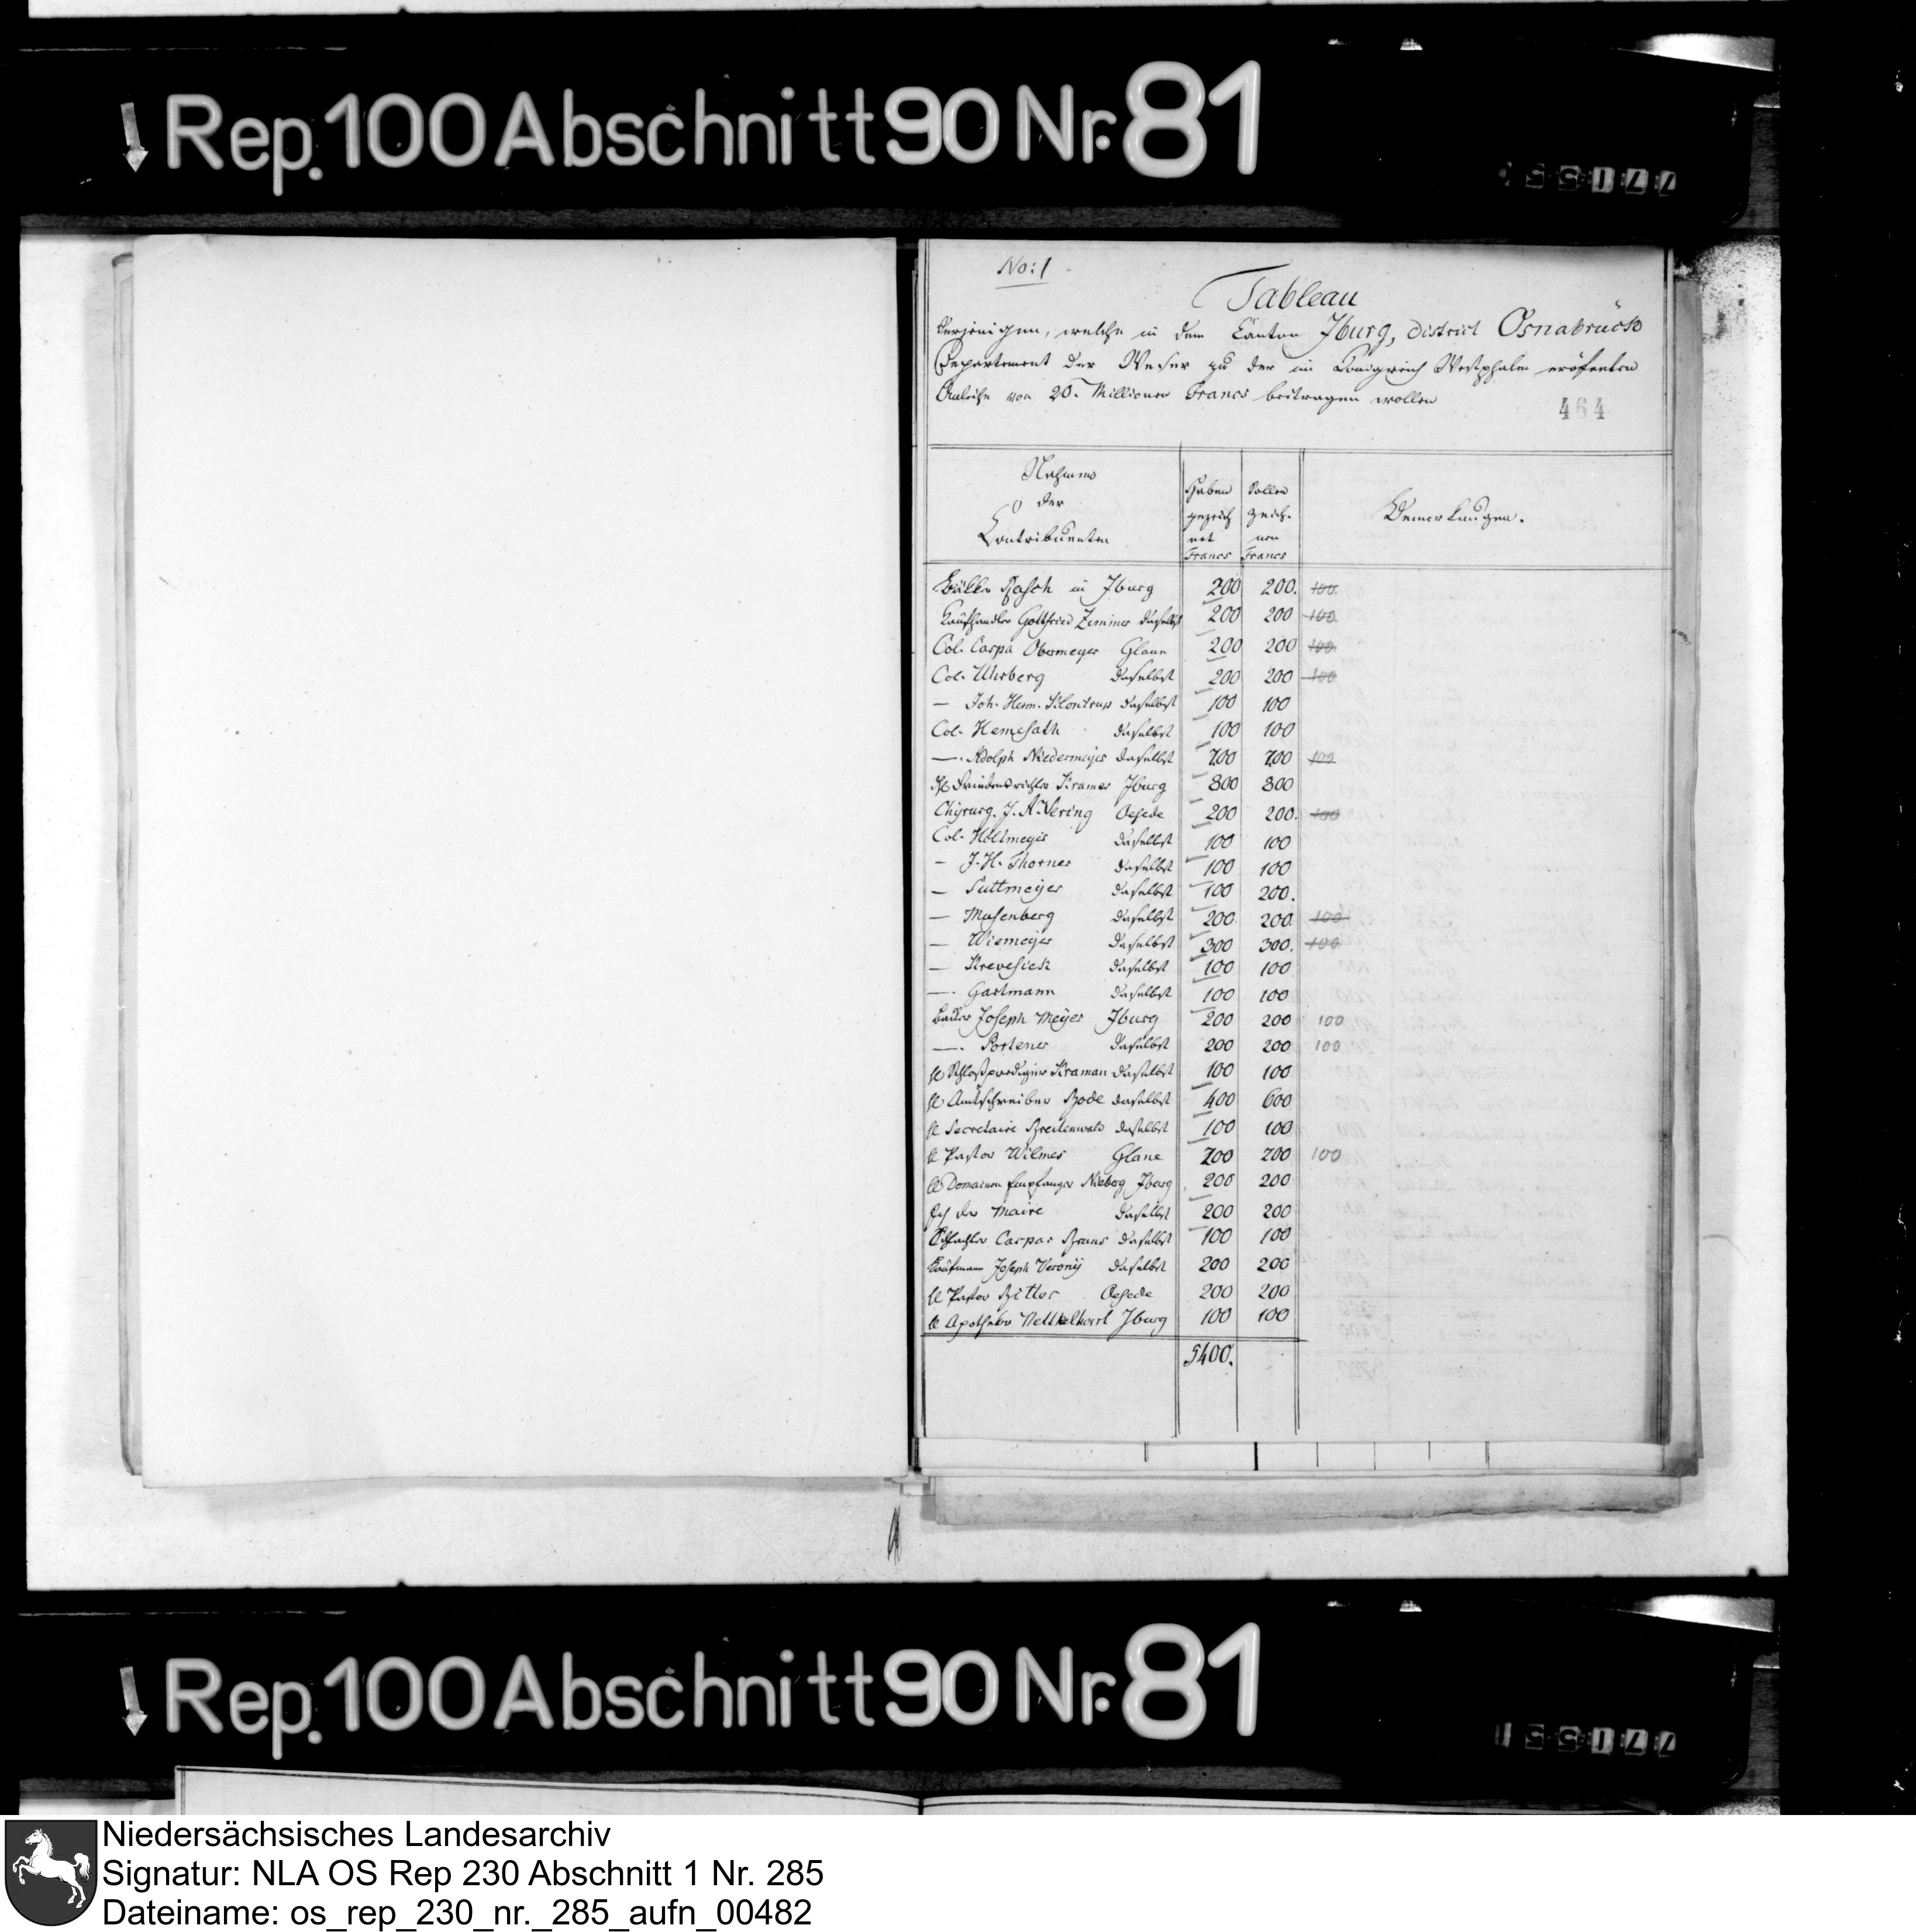 Rep. 100 Abschnitt 90 Nr. 81
No: 1
Tableau
derjenigen, welche in dem Canton Iburg, District Osnabrück
Departement der Weser zu der im Königreich Westphalen eröfneten
Anleihe von 20. Millionen Francs beitragen wollen
464
Nahmens der Contribuenten
Haben gezeichnet Francs
Sollen zeichnen Francs
Bemerkungen.
Rasch in Iburg 200 200. 100.
Kaufhandler Gottfried Zimmer daselbst 200 200 100
Col. Caspa Obermeyer Glane 200 200 100.
Col. Uhrberg daselbst 200 200 100
— Joh. Herm. daselbst 100 100
Col. Hemesath daselbst 100 100
—. Adolph Niedermeyer daselbst 200 200 100
H Friedensrichter Kramer Iburg 300 300
Chyrurg. J. A. Vering Oesede 200 200. 100
Col. Höltmeyer daselbst 100 100
— J. H. Thorner daselbst 100 100
— Suttmeyer daselbst 100 200.
— Musenberg daselbst 200 200. 100
— Wiemeyer daselbst 300 300. 100
— Krevesiek daselbst 100 100
—. Gartmann daselbst 100 100
Becker Joseph Meyer Iburg 200 200 100
—. Portener daselbst 200 200 100
H Schloßprediger Kraman daselbst 100 100
H Amtschreiber Bode daselbst 400 600
H Secretaire Breitenwald daselbst 100 100
H Pastor Wilmer Glane 200 200 100
H Domainen Empfanger Nieberg Iburg 200 200
Ich der Maire daselbst 200 200
Schlachter Caspar Bruns daselbst 100 100
Kaufmann Joseph Verony daselbst 200 200
H Pastor Bitter Oesede 200 200
H Apotheker Iburg 100 100
5400.
Rep. 100 Abschnitt 90 Nr. 81
Niedersächsisches Landesarchiv
Signatur: NLA OS Rep 230 Abschnitt 1 Nr. 285
Dateiname: os_rep_230_nr._285_aufn_00482